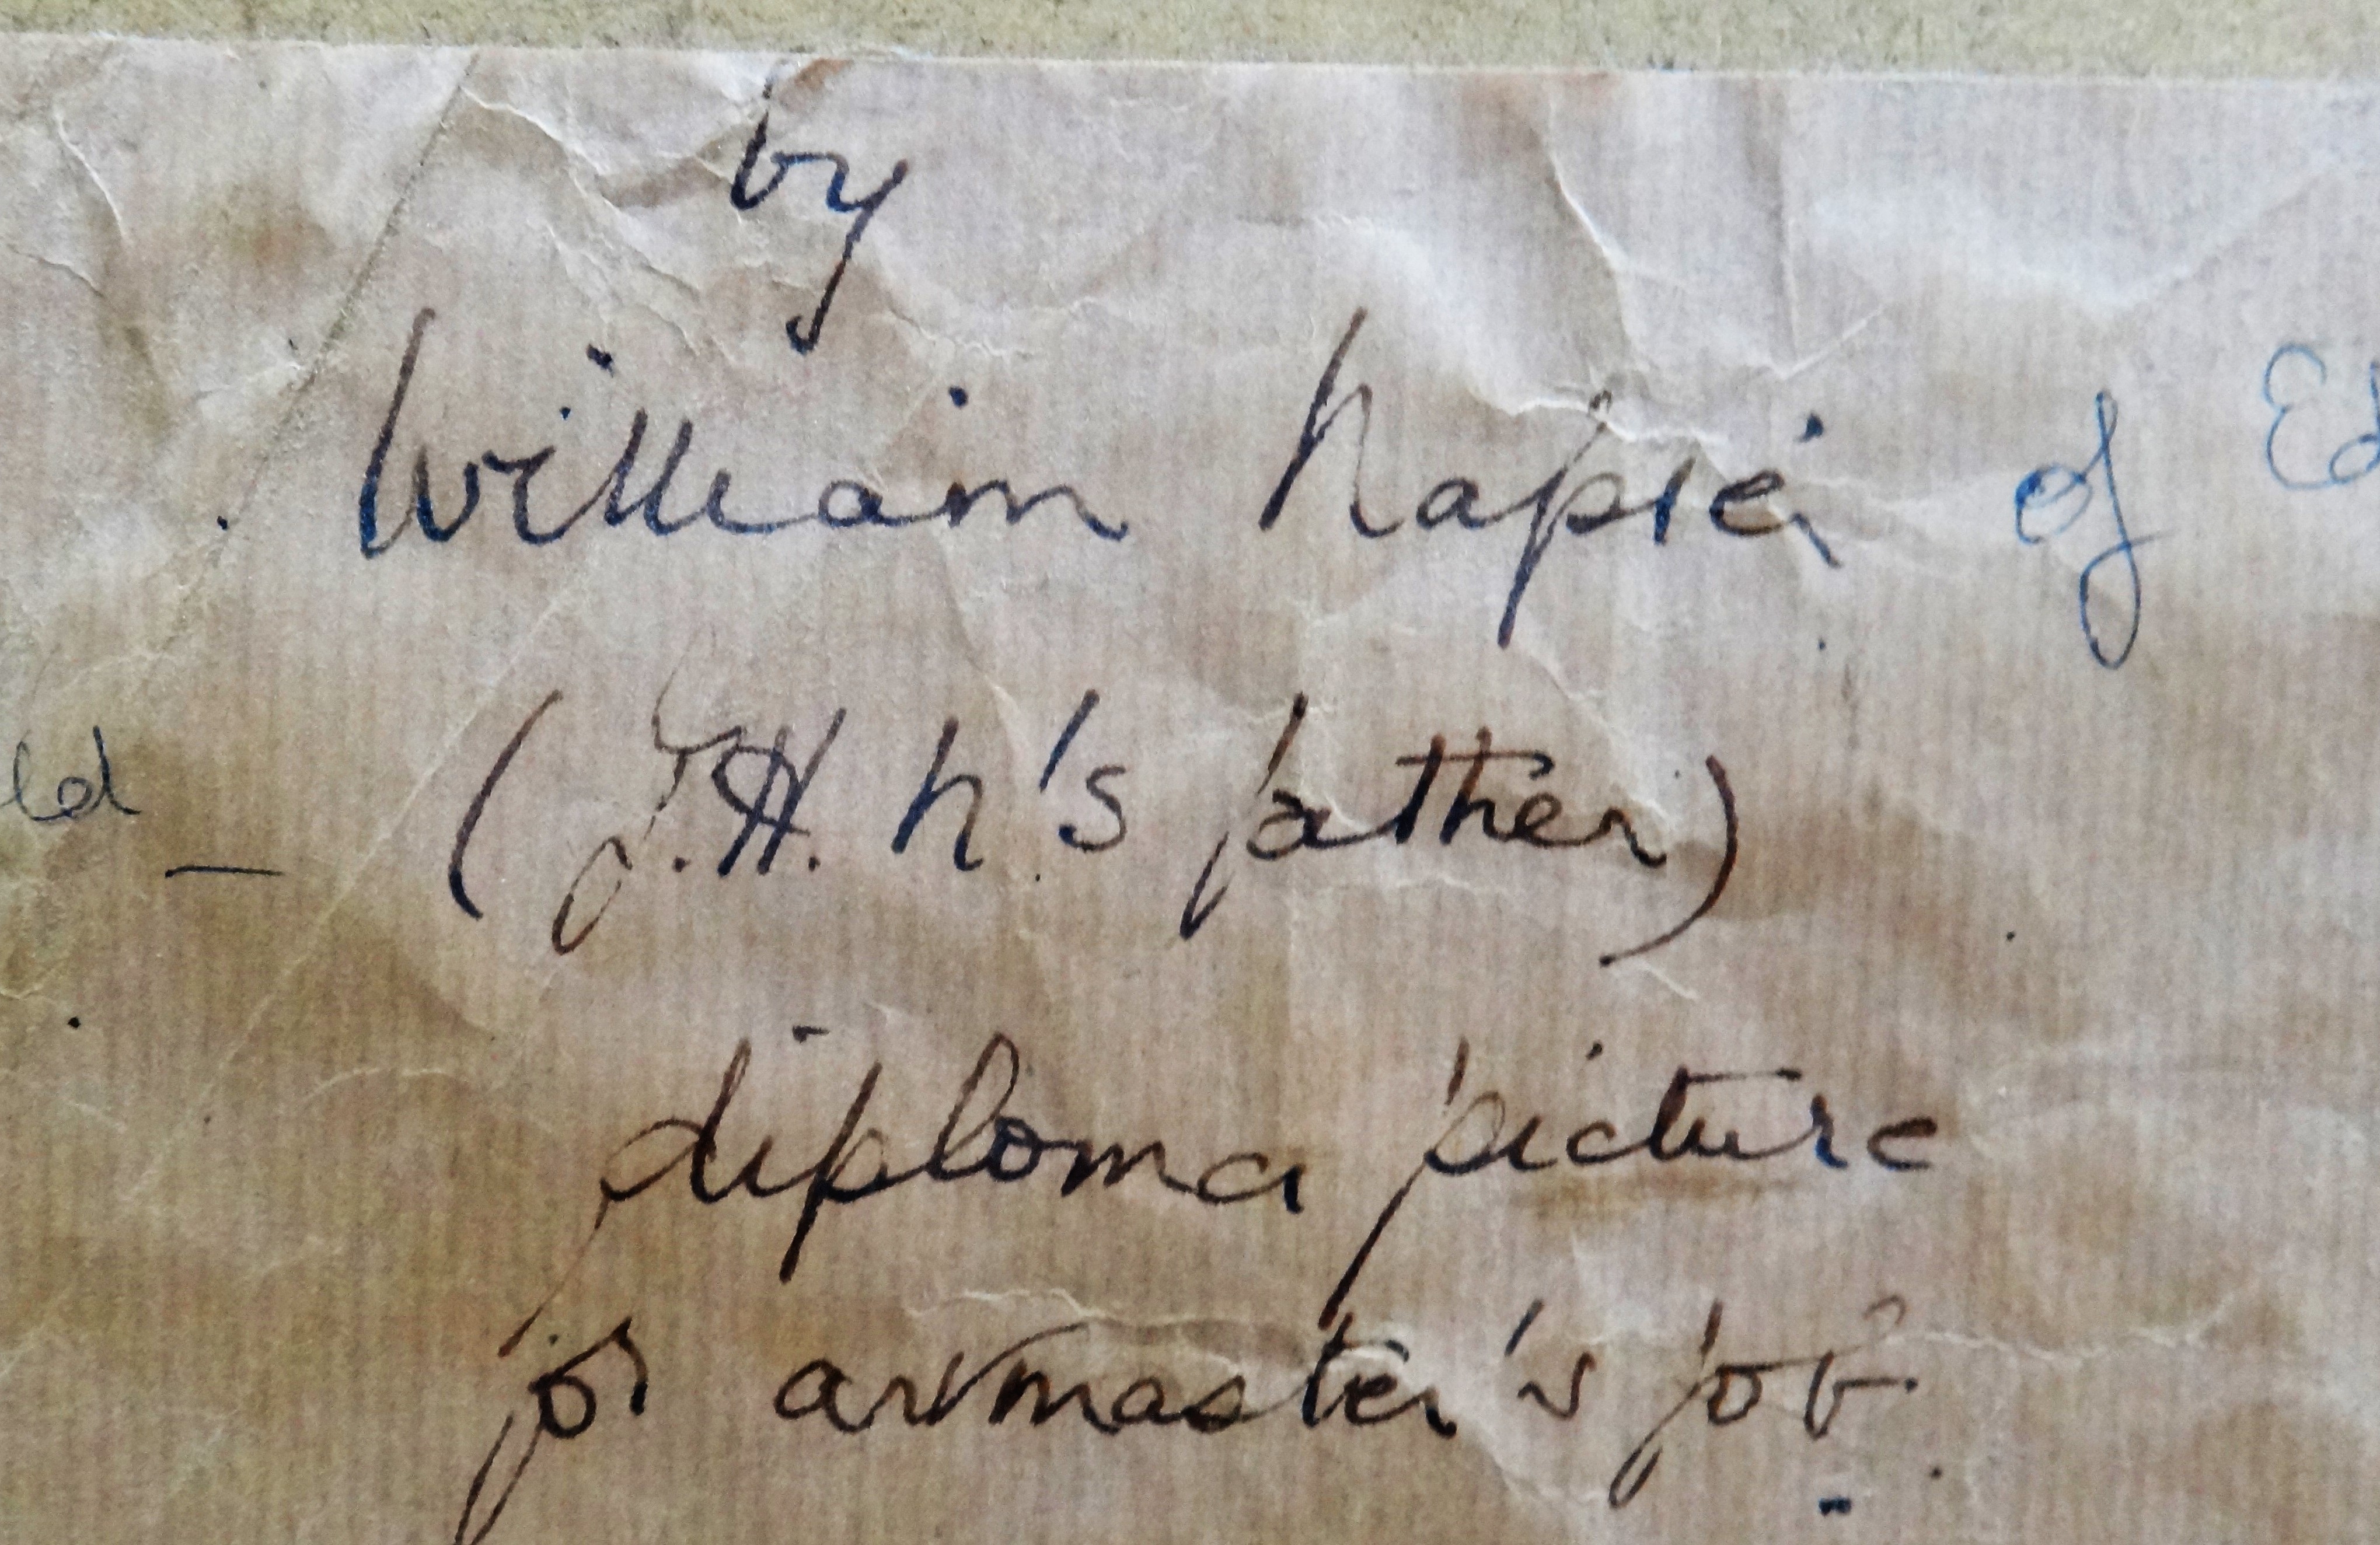 by
William Napier of Ed
ld — (J.H. N's father)
diploma picture
for artmaster's job.